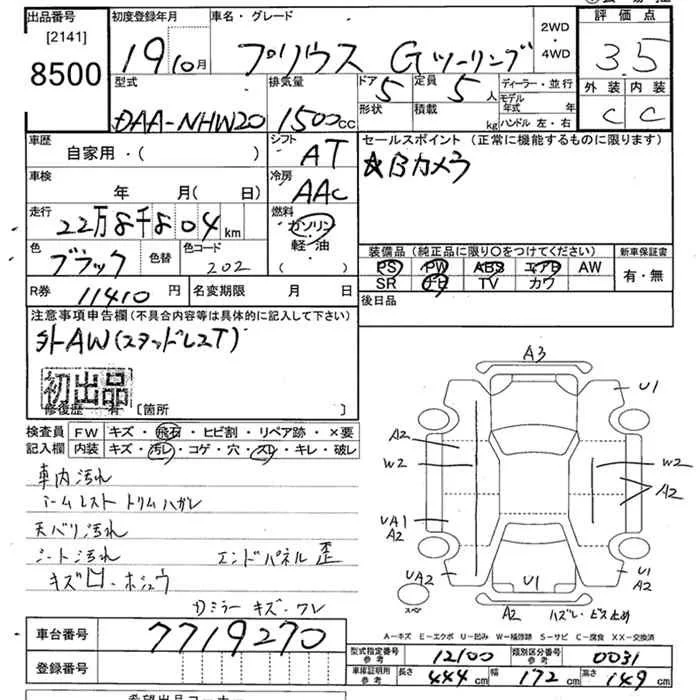 出品番号 初度登録年月 車名・グレード 2WD ・4WD 評価点
[2141]
8500 19 10月 プリウス Gツーリング 3.5
型式 排気量 ドア 5 定員 5人 ディーラー・並行 外装 内装
DAA-NHW20 1500cc 形状 積載 kg モデル年式 年 ハンドル 左・右 C C
車歴 シフト セールスポイント (正常に機能するものに限ります)
自家用・( ) AT ☆Bカメラ
車検 冷房
年 月( 日) AAC
走行 燃料
22万8千804km ガソリン
色 色替 色コード 軽・油 装備品 (純正品に限り○をつけてください) 新車保証書
ブラック 202 ( ・ ) PS PW ABS エアB AW 有・無
SR ナビ TV カワ
R券 11410円 名変期限 月 日 後日品
注意事項申告欄(不具合内容等は具体的に記入して下さい)
外AW(スタッドレスT)
初出品
修復歴 有 [箇所 ]
検査員 FW キズ・飛石・ヒビ割・リペア跡・×要
記入欄 内装 キズ・汚レ・コゲ・穴・スレ・キレ・破レ
車内汚れ
アームレスト トリムハガレ
天バリ汚れ
シート汚れ エンドパネル歪
キズ凹・ホシュウ
Dミラー キズ・ワレ
A3
U1
A2
W2 W2
A2
UA1
A2
UA2 U1 U1
A2
スペア A2 ハズレ・ビス止め
A-キズ E-エクボ U-凹み W-補修跡 S-サビ C-腐食 XX-交換済
車台番号 7719270
型式指定番号 参考 12100 類別区分番号 参考 0031
登録番号
車庫証明用 参考 長さ 444cm 幅 172cm 高さ 149cm
希望出品コーナー